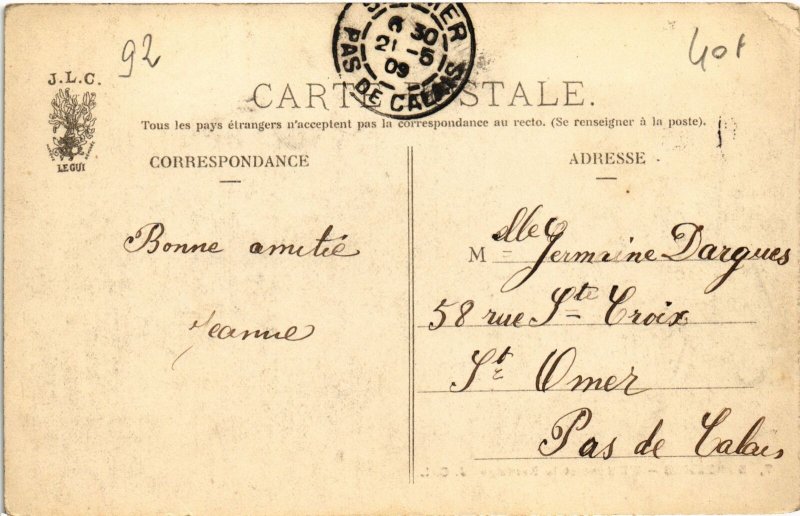 92
40f
OMER
6 30
21 -5
09
PAS DE CALAIS
J.L.C.
LE GUI
CARTE POSTALE.
Tous les pays étrangers n'acceptent pas la correspondance au recto. (Se renseigner à la poste).
CORRESPONDANCE
Bonne amitié
Jeanne
ADRESSE
Mlle Germaine Dargues
58 rue Ste Croix
St Omer
Pas de Calais